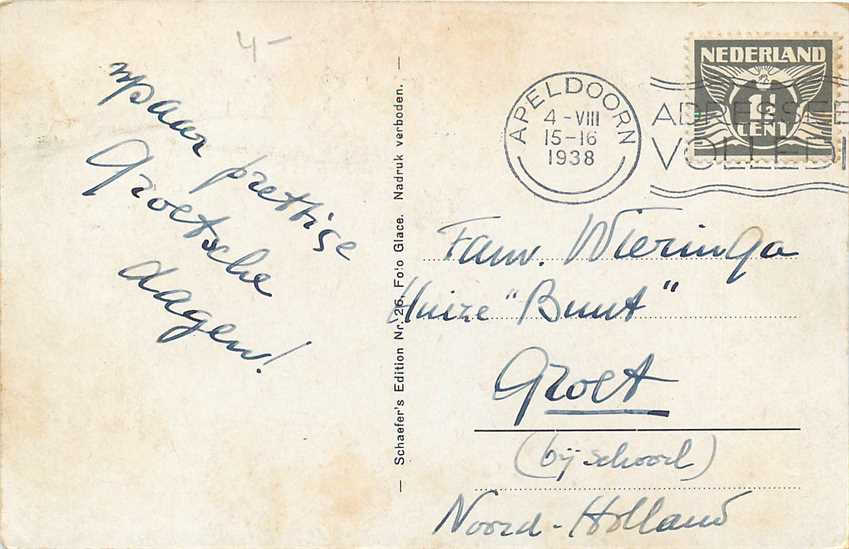 4-
npaar prettige
Groetsche
dagen!
— Schaefer's Edition Nr. 26, Foto Glacé. Nadruk verboden. —
APELDOORN
4 - VIII
15-16
1938
NEDERLAND
1½
CENT
ADRESSEE
VOLLEDI
Fam. Wieringa
Huize "Bunt"
Groet
(bij schoorl)
Noord-Holland